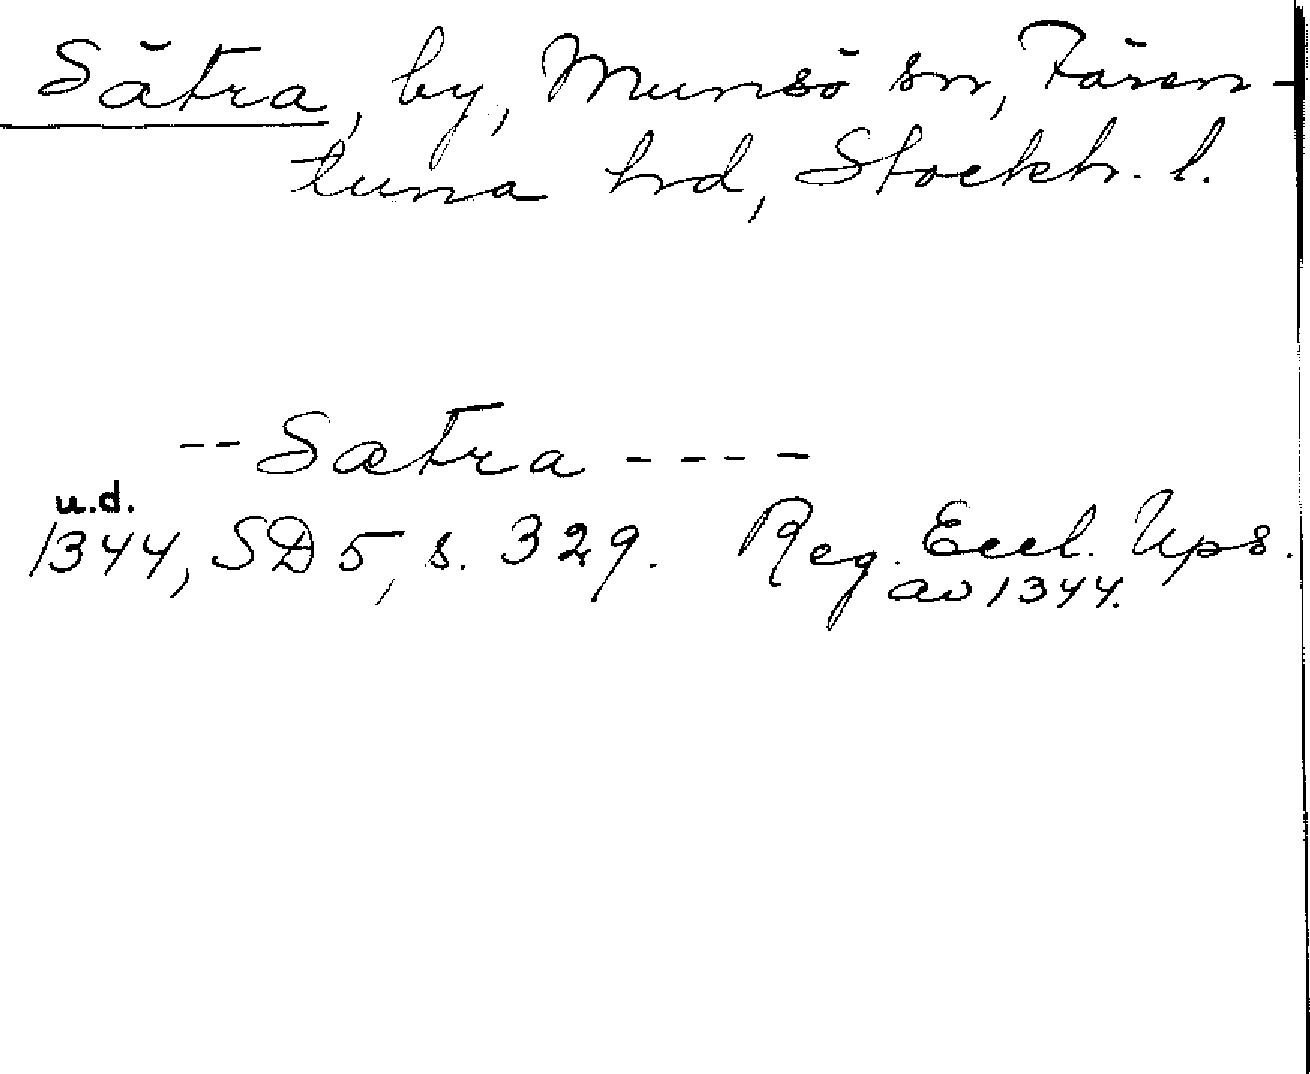 Sätra, by, Munsö sn, Fären-
tuna hd, Stockh. l.
-- Sætra ----
u.d.
1344, SD 5, s. 329. Reg. Eccl. Ups.
av 1344.